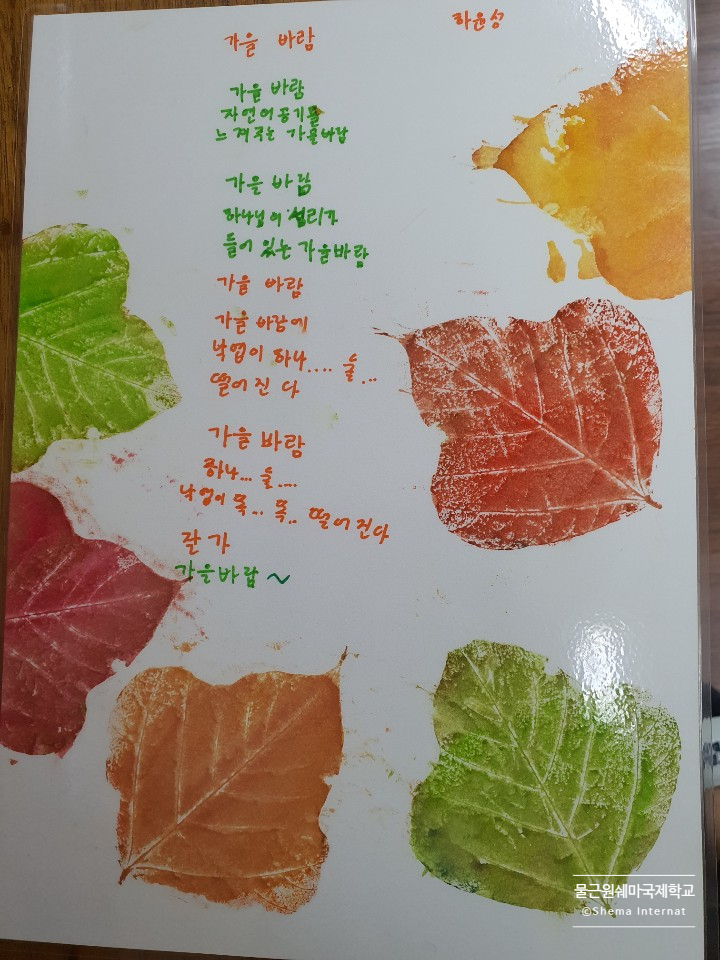 가을 바람
하윤성
가을 바람
자연의 공기를
느껴주는 가을바람
가을 바람
하나님의 섭리가
들어 있는 가을바람
가을 바람
가을 바람에
낙엽이 하나.... 둘...
떨어진 다
가을 바람
하나... 둘....
낙엽이 뚝... 뚝.. 떨어진다
잘 가
가을바람~
물근원쉐마국제학교
©Shema Internat